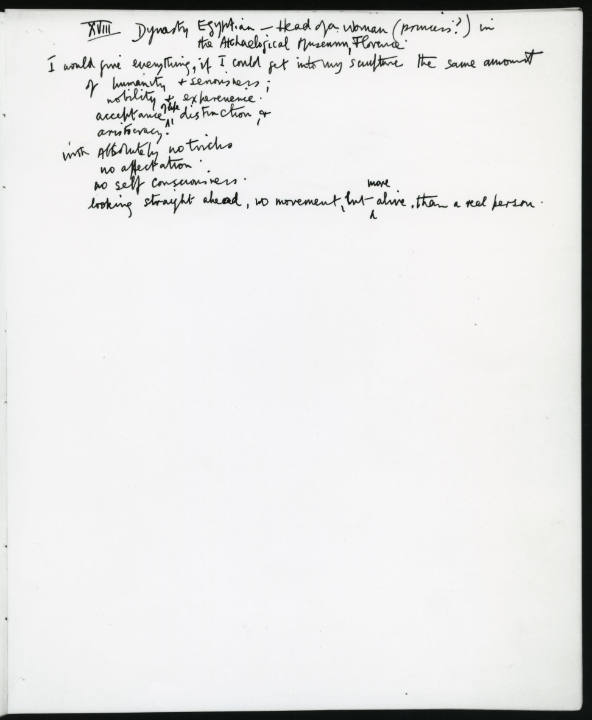 XVIII Dynasty Egyptian – Head of a woman (princess?) in
the Archaelogical Museum, Florence.
I would give everything, if I could get into my sculpture the same amount
of humanity + seriousness;
nobility + experience.
acceptance of life, distinction, &
aristocracy.
with Absolutely no tricks
no affectation.
no self consciousness.
looking straight ahead, no movement, but more alive, than a real person.